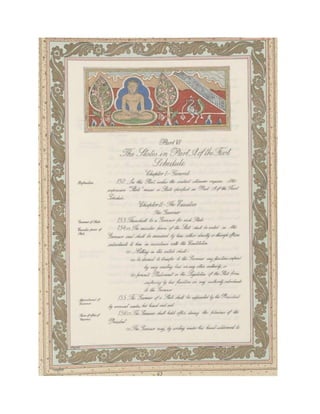 Part VI
The States in Part A of the First
Schedule
Chapter I - General
Definition. 152. In this Part, unless the context otherwise requires, the
expression "State" means a State specified in Part A of the First
Schedule.
Chapter II - The Executive
The Governor
Governors of States. 153. There shall be a Governor for each State.
Executive power of State. 154. (1) The executive power of the State shall be vested in the
Governor and shall be exercised by him either directly or through officers
subordinate to him in accordance with this Constitution.
(2) Nothing in this article shall -
(a) be deemed to transfer to the Governor any functions conferred
by any existing law on any other authority; or
(b) prevent Parliament or the Legislature of the State from
conferring by law functions on any authority subordinate
to the Governor.
Appointment of Governor. 155. The Governor of a State shall be appointed by the President
by warrant under his hand and seal.
Term of office of Governor. 156. (1) The Governor shall hold office during the pleasure of the
President.
(2) The Governor may, by writing under his hand addressed to